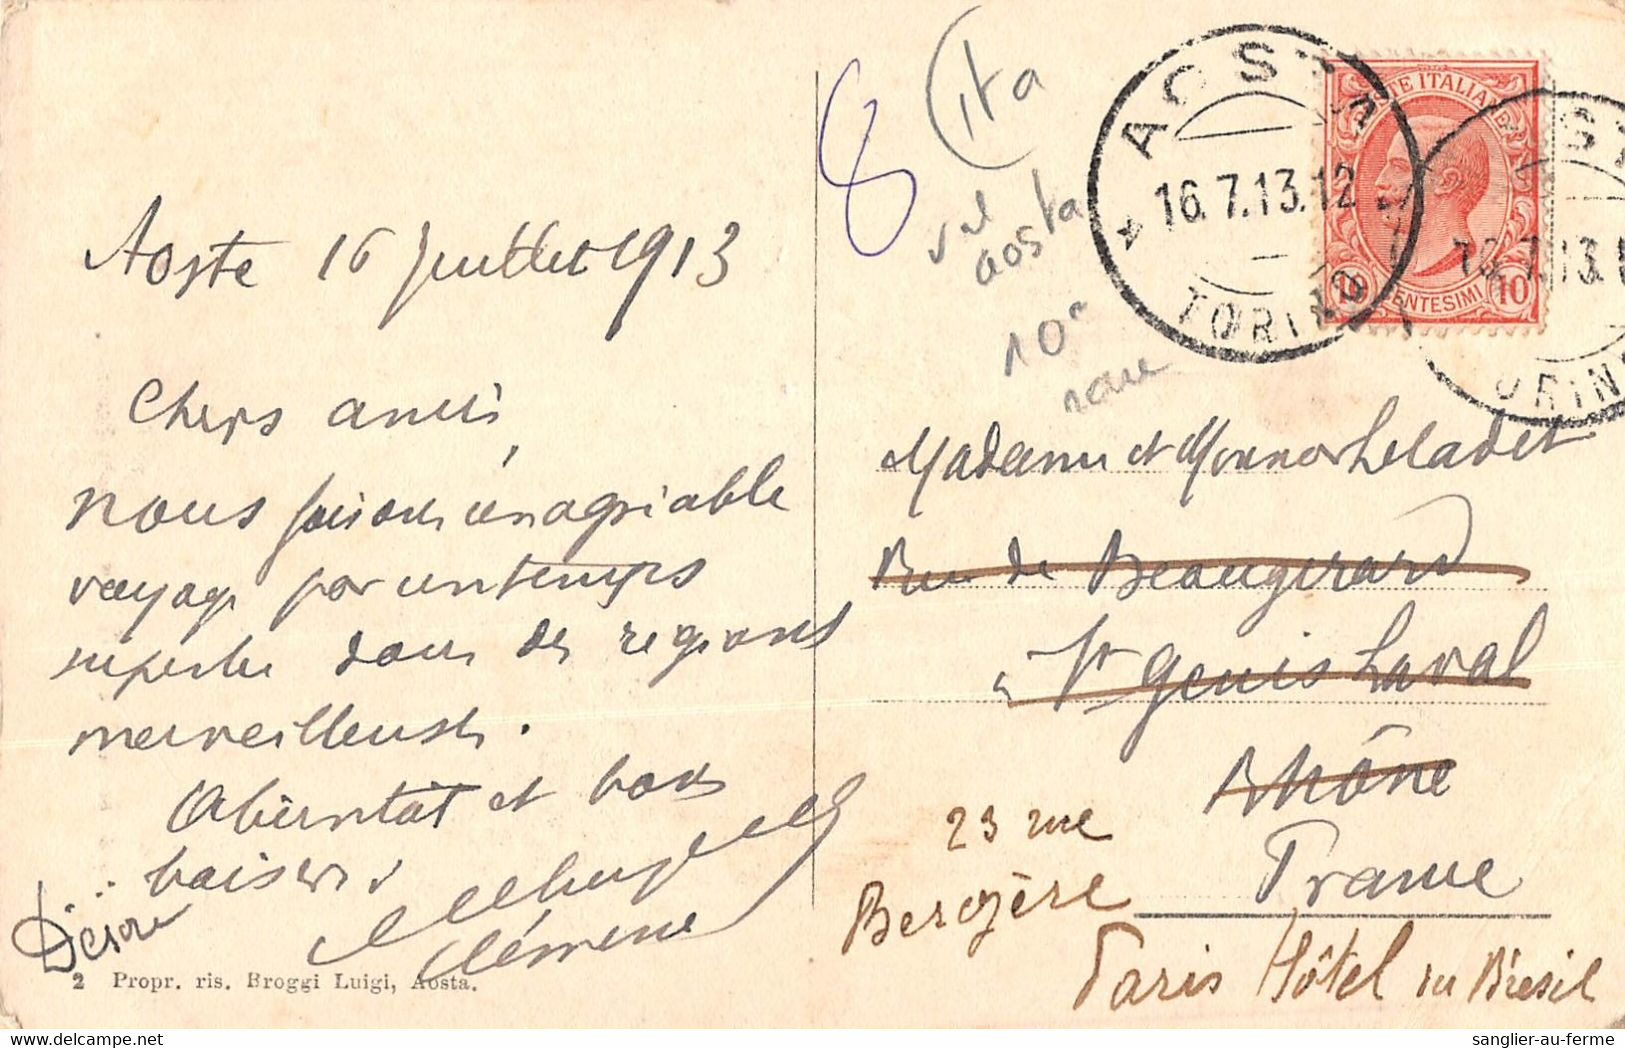 Aoste 16 Juillet 1913
Chers amis,
nous faisons un agréable
voyage par un temps
superbe dans des régions
merveilleuses.
et bons
baisers
Clémence
Désiré
2 Propr. ris. Broggi Luigi, Aosta.
8
Ita
val
aosta
10e
rare
AOSTA
16.7.13.12
TORINO
POSTE ITALIANE
10 CENTESIMI 10
16.7.13.1
ORIN
Madame et Monsor Leladet
Rue de Beauregard
à St Genis Laval
Rhône
France
23 rue
Bergère
Paris Hôtel du Brésil
sanglier-au-ferme